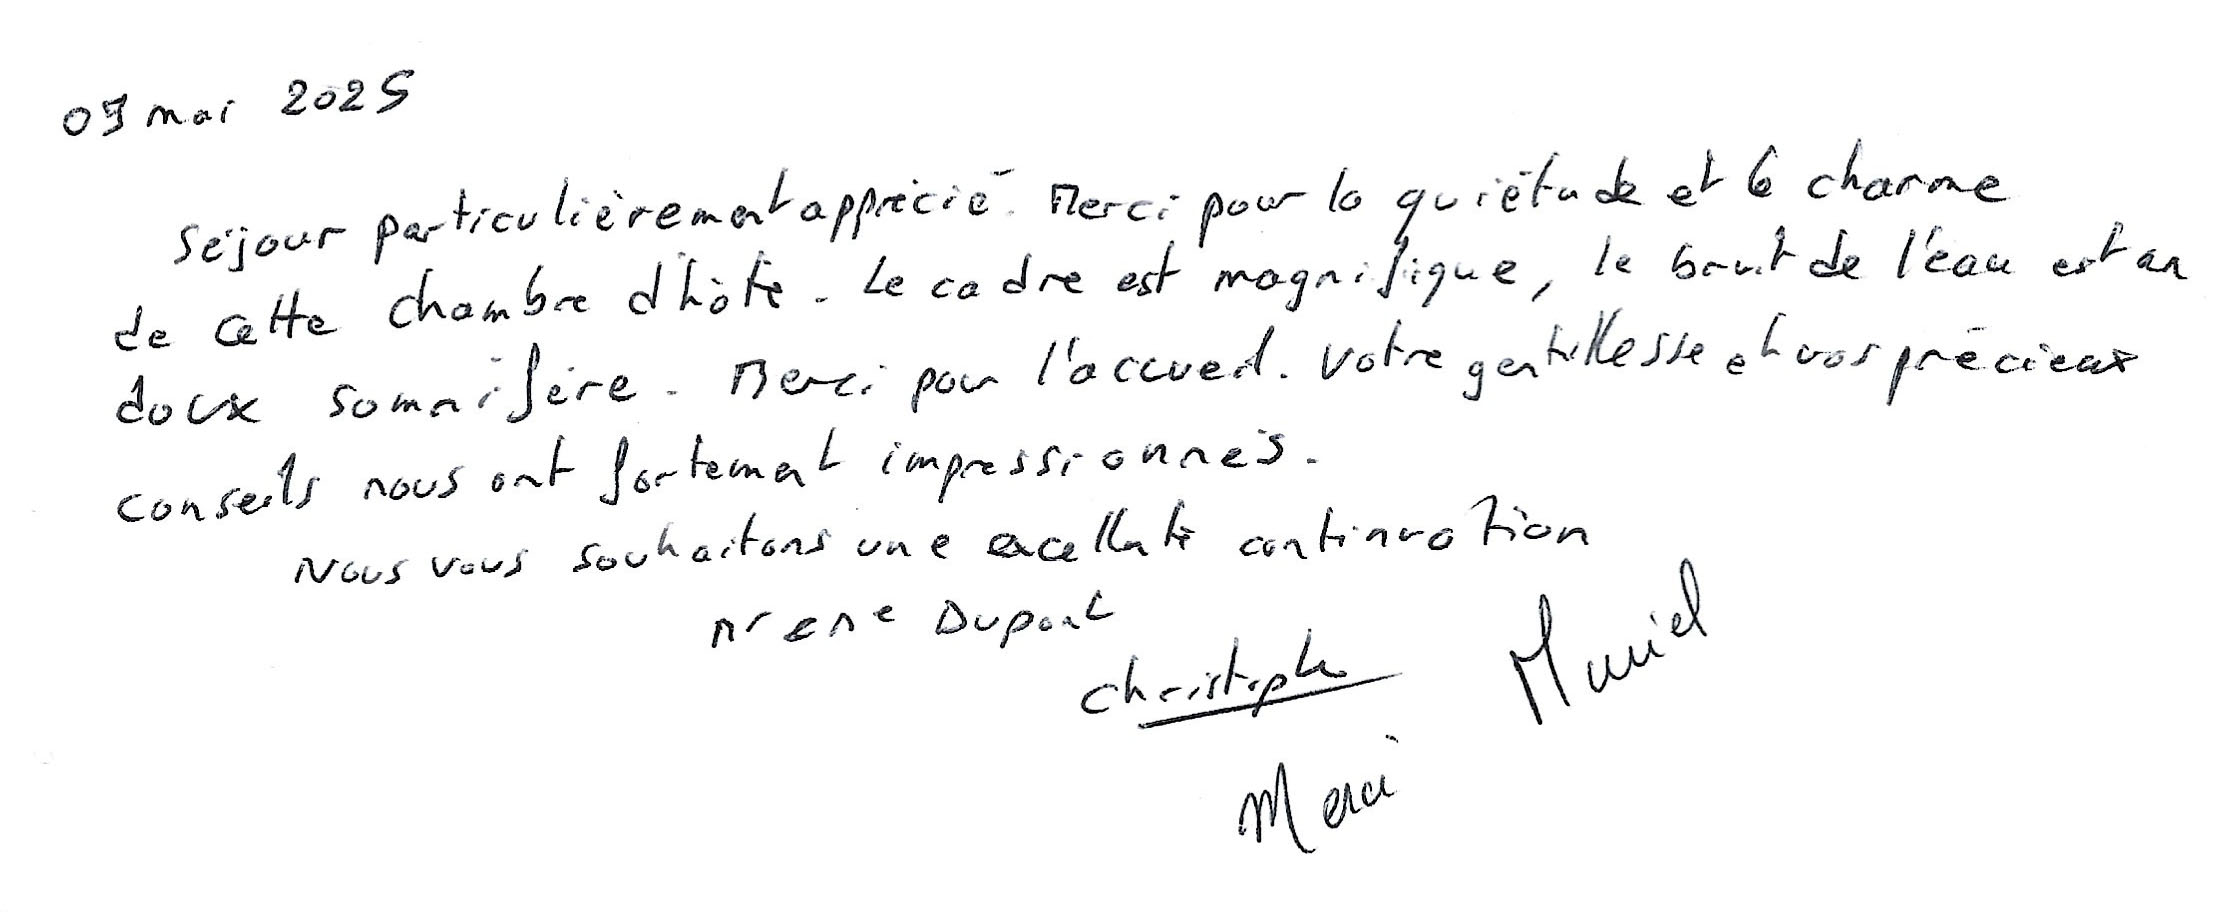 09 mai 2025
Séjour particulièrement apprécié. Merci pour la quiétude et le charme
de cette chambre d'hôte. Le cadre est magnifique, le bruit de l'eau est un
doux somnifère. Merci pour l'accueil. Votre gentillesse et vos précieux
conseils nous ont fortement impressionnés.
Nous vous souhaitons une excellente continuation
Mr et Me Dupont
Christophe Muriel
Merci